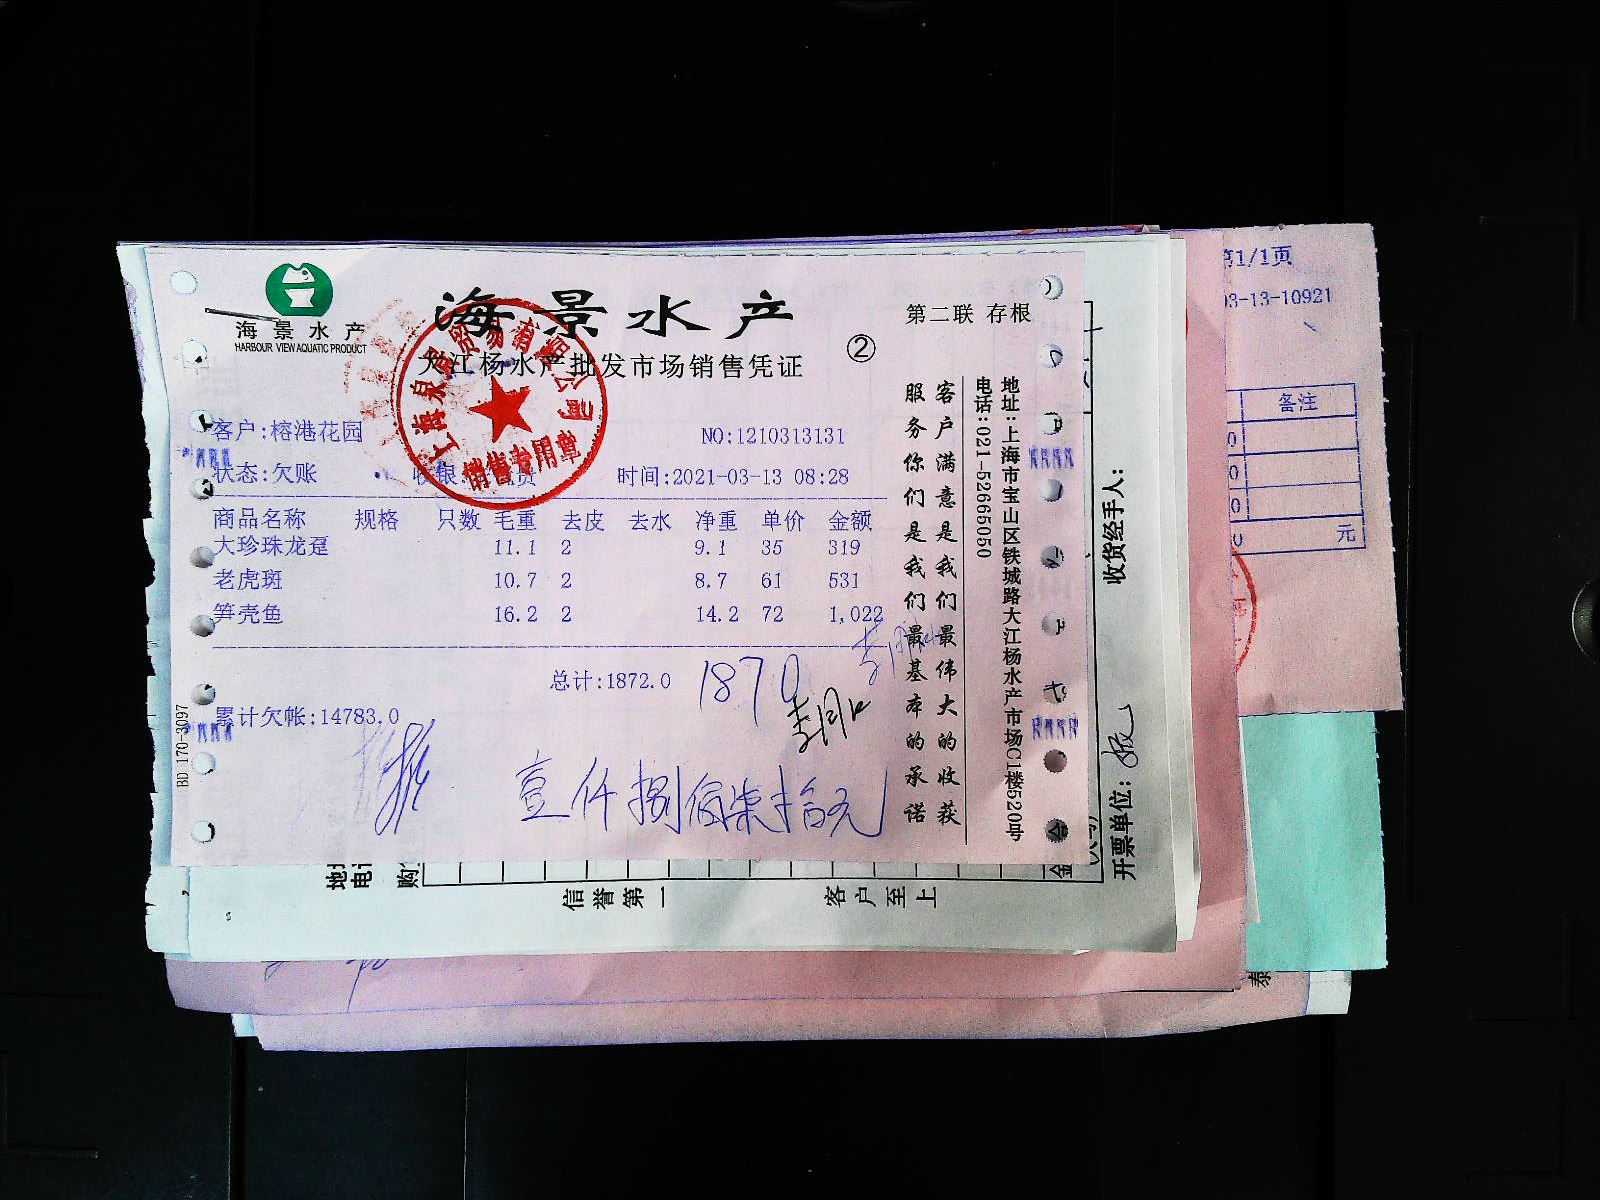 海景水产
HARBOUR VIEW AQUATIC PRODUCT
海景水产
大江杨水产批发市场销售凭证
②
第二联 存根
客户:榕港花园
NO:1210313131
状态:欠账
收银:
时间:2021-03-13 08:28
商品名称 规格 只数 毛重 去皮 去水 净重 单价 金额
大珍珠龙趸 11.1 2 9.1 35 319
老虎斑 10.7 2 8.7 61 531
笋壳鱼 16.2 2 14.2 72 1,022
总计:1872.0
1870
累计欠帐:14783.0
壹仟捌佰柒拾元
BD 170-3097
销售专用章
客户满意是我们最伟大的收获
服务你们是我们最基本的承诺
地址:上海市宝山区铁城路大江杨水产市场C1楼520号
电话:021-52665050
收货经手人:
开票单位:
信誉第一
客户至上
第1/1页
03-13-10921
备注
元
泰